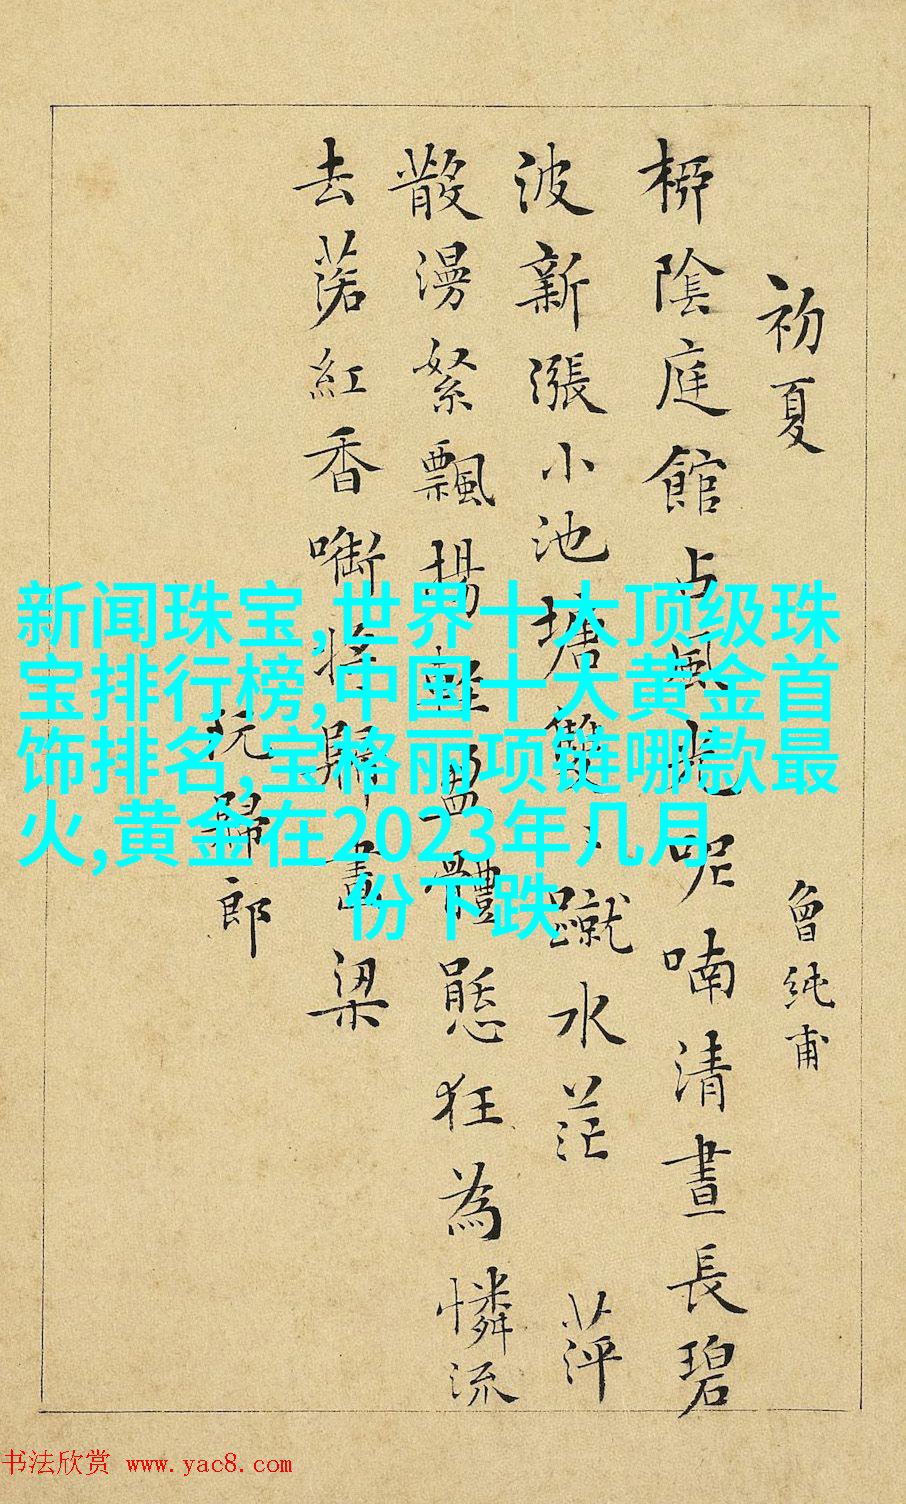 初夏
曾純甫
柳陰庭館占風光呢喃清晝長碧
波新漲小池塘雙〻蹴水茫 萍
散漫絮飄揚輕盈體態狂為憐流
去落紅香啣將歸畫梁
阮歸郎
新闻珠宝,世界十大顶级珠
宝排行榜,中国十大黄金首
饰排名,宝格丽项链哪款最
火,黄金在2023年几月
份下跌
书法欣赏 www.yac8.com